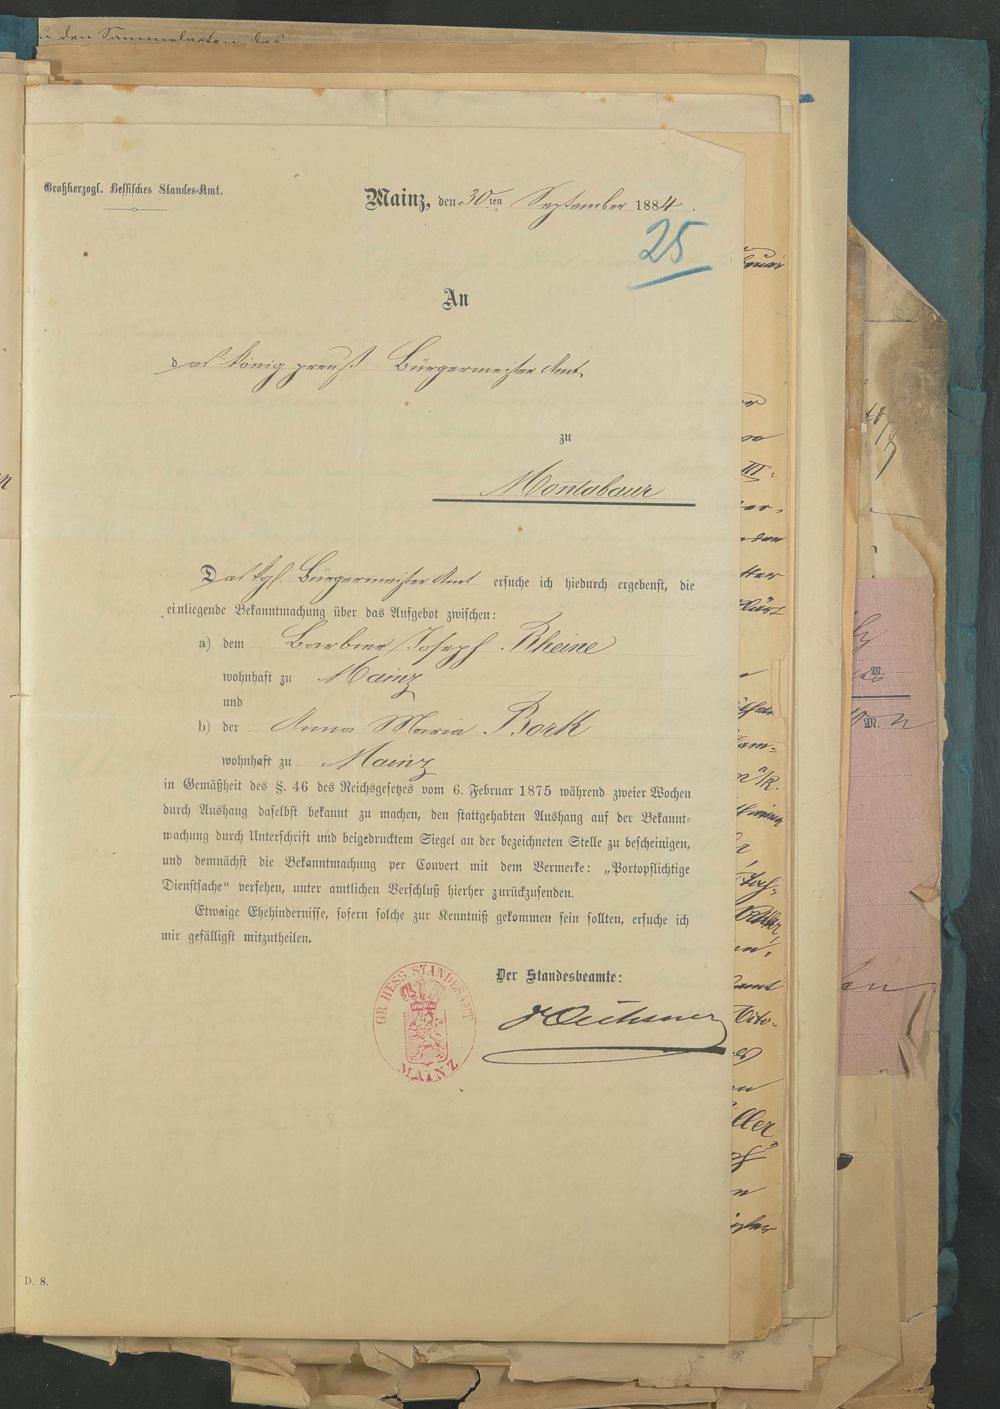 zu den Sammelakten des
Großherzogl. Hessisches Standes-Amt.
Mainz, den 30ten September 1884.
25
An
das König preuß Bürgermeister Amt
zu
Montabaur
Das Kgl. Bürgermeister Amt ersuche ich hiedurch ergebenst, die
einliegende Bekanntmachung über das Aufgebot zwischen:
a) dem Barbier Joseph Rheine
wohnhaft zu Mainz
und
b) der Anna Maria Bork
wohnhaft zu Mainz
in Gemäßheit des §. 46 des Reichsgesetzes vom 6. Februar 1875 während zweier Wochen
durch Aushang daselbst bekannt zu machen, den stattgehabten Aushang auf der Bekannt-
machung durch Unterschrift und beigedrucktem Siegel an der bezeichneten Stelle zu bescheinigen,
und demnächst die Bekanntmachung per Couvert mit dem Vermerke: „Portopflichtige
Dienstsache“ versehen, unter amtlichen Verschluß hierher zurückzusenden.
Etwaige Ehehindernisse, sofern solche zur Kenntniß gekommen sein sollten, ersuche ich
mir gefälligst mitzutheilen.
Der Standesbeamte:
GR. HESS. STANDESAMT
MAINZ
D. 8.